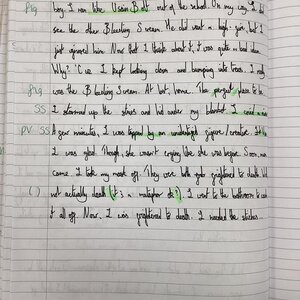 fig boy I ran like Usain Bolt out of the school. On my way, I did
see the other Blasting Scream. He did want a high-five, but I
just ignored him. Now that I think about it, it was quite a bad idea.
Why? 'Cus I kept looking down and bumping into trees. I really
fig was the Blasting Scream. At last, home. The perfect place to be
SS I stormed up the stairs and hid under my blanket. I could
PV SS A few minutes, I was by an figure / creature.
I was good though, she wasn't crying like she was before. Soon, mum
came. I take my mask off. They were both quite frightened to death.
( ) not actually death (it's a metaphor ok?). I went to the bathroom to
it all off. Now, I was frightened to death. I needed the stitches.